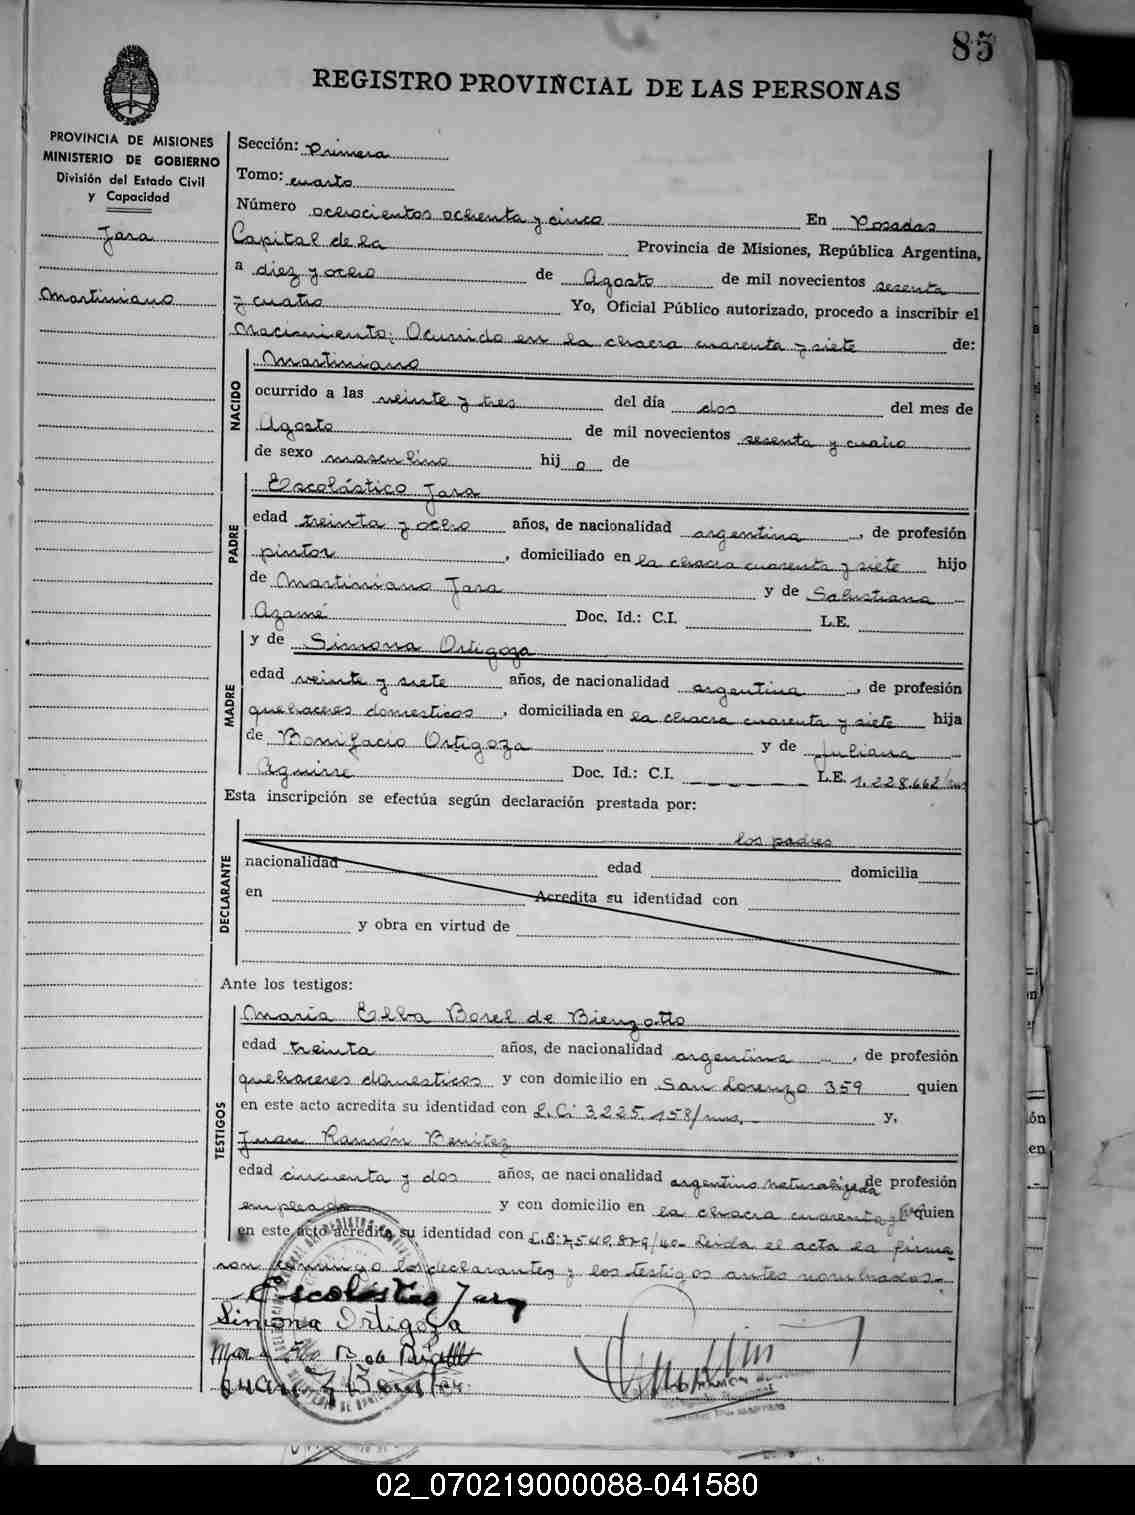 85
REGISTRO PROVINCIAL DE LAS PERSONAS
PROVINCIA DE MISIONES
MINISTERIO DE GOBIERNO
División del Estado Civil
y Capacidad
Jara
Martiniano
Sección: Primera
Tomo: cuarto
Número ochocientos ochenta y cinco En Posadas
Capital de la Provincia de Misiones, República Argentina,
a diez y ocho de Agosto de mil novecientos sesenta
y cuatro Yo, Oficial Público autorizado, procedo a inscribir el
Nacimiento: Ocurrido en la chacra cuarenta y siete de:
NACIDO
Martiniano
ocurrido a las veinte y tres del día dos del mes de
Agosto de mil novecientos sesenta y cuatro
de sexo masculino hijo de
PADRE
Escolástico Jara
edad treinta y ocho años, de nacionalidad argentina, de profesión
pintor, domiciliado en la chacra cuarenta y siete hijo
de Martiniano Jara y de Salustiana
Azamé Doc. Id.: C.I. L.E.
MADRE
y de Simona Ortigoza
edad veinte y siete años, de nacionalidad argentina, de profesión
quehaceres domesticos, domiciliada en la chacra cuarenta y siete hija
de Bonifacio Ortigoza y de Juliana
Aguirre Doc. Id.: C.I. L.E. 1.228.662/
Esta inscripción se efectúa según declaración prestada por:
DECLARANTE
los padres
nacionalidad edad domicilia
en Acredita su identidad con
y obra en virtud de
Ante los testigos:
TESTIGOS
Maria Elba Borel de Bienzotto
edad treinta años, de nacionalidad argentina, de profesión
quehaceres domesticos y con domicilio en San Lorenzo 359 quien
en este acto acredita su identidad con L.C: 3.225.158/mns. y,
Juan Ramón Benitez
edad cincuenta y dos años, de nacionalidad argentino naturalizado de profesión
empleado y con domicilio en la chacra cuarenta y quien
en este acto acredita su identidad con Leida el acta la firma
ron conmigo los declarantes y los testigos antes nombrados.
Escolástico Jara
Simona Ortigoza
02_070219000088-041580